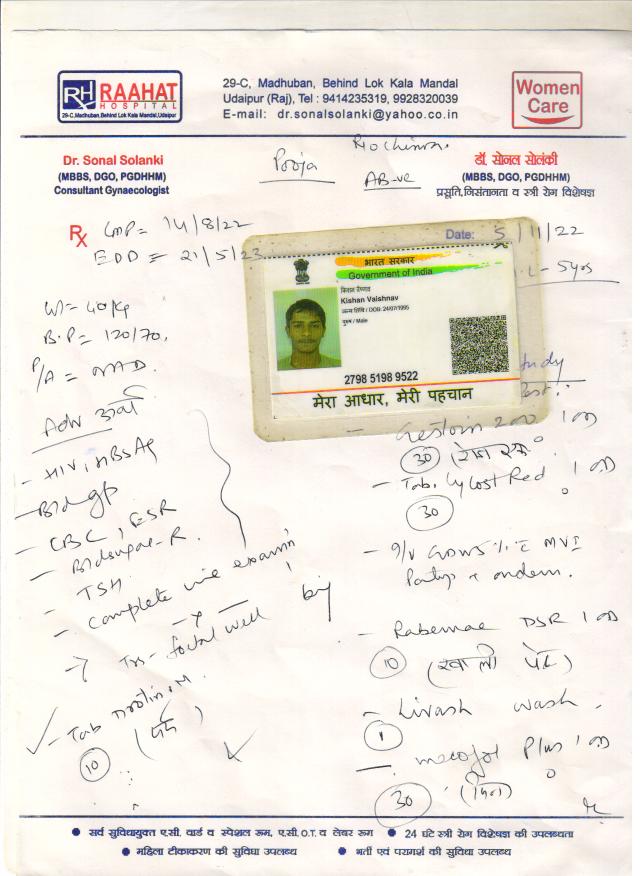 RH RAAHAT
HOSPITAL
29-C,Madhuban,Behind Lok Kala Mandal,Udaipur
29-C, Madhuban, Behind Lok Kala Mandal
Udaipur (Raj), Tel : 9414235319, 9928320039
E-mail: dr.sonalsolanki@yahoo.co.in
Women
Care
Dr. Sonal Solanki
(MBBS, DGO, PGDHHM)
Consultant Gynaecologist
Pooja
AB-ve
डॉ. सोनल सोलंकी
(MBBS, DGO, PGDHHM)
प्रसूति,निसंतानता व स्त्री रोग विशेषज्ञ
Rx
LMP= 14/8/22
EDD = 21/5/23
Date: 5/11/22
L - 5yrs
भारत सरकार
Government of India
किशन वैष्णव
Kishan Vaishnav
जन्म तिथि / DOB: 24/07/1995
पुरुष / Male
2798 5198 9522
मेरा आधार, मेरी पहचान
W= 40kg
B.P= 120/70.
P/A = NAD.
Adv
- HIV, HBsAg
- Bldgp
- CBC, ESR
- Bldsugar-R.
- TSH
- Complete urine examn
- foetal well
- Tab Drotin.M.
(दर्द)
10
study
200
30
- Tab.
Red
30
MVI
- DSR
10 (खाली पेट)
- Livash wash.
1
Plus
30
● सर्व सुविधायुक्त ए.सी. वार्ड व स्पेशल रूम, ए.सी.O.T. व लेबर रूम ● 24 घंटे स्त्री रोग विशेषज्ञ की उपलब्धता
● महिला टीकाकरण की सुविधा उपलब्ध ● भर्ती एवं परामर्श की सुविधा उपलब्ध